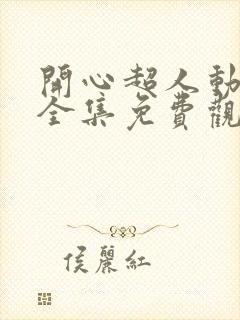 開心超人動
全集免費觀
侯麗紅